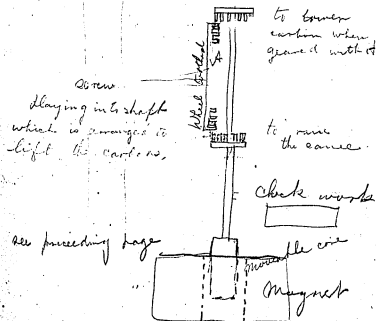 to lower
carbon when
geared with it
A
Wheel
screw
playing into shaft
which is arranged to
lift the carbon,
to raise
the same
Check work
see preceeding page
moveable core
Magnet